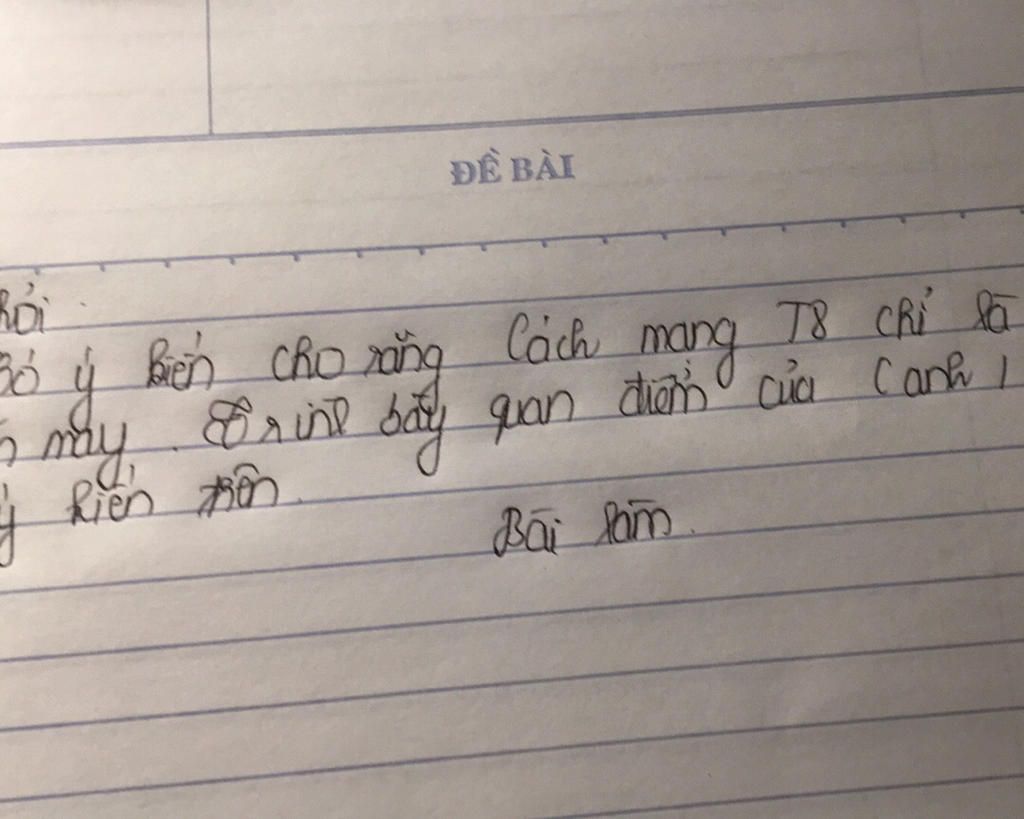 ĐỀ BÀI
hỏi
Có ý kiến cho rằng Cách mạng T8 chỉ là
may. Trình bày quan điểm của (anh /
ý kiến trên.
Bài làm.